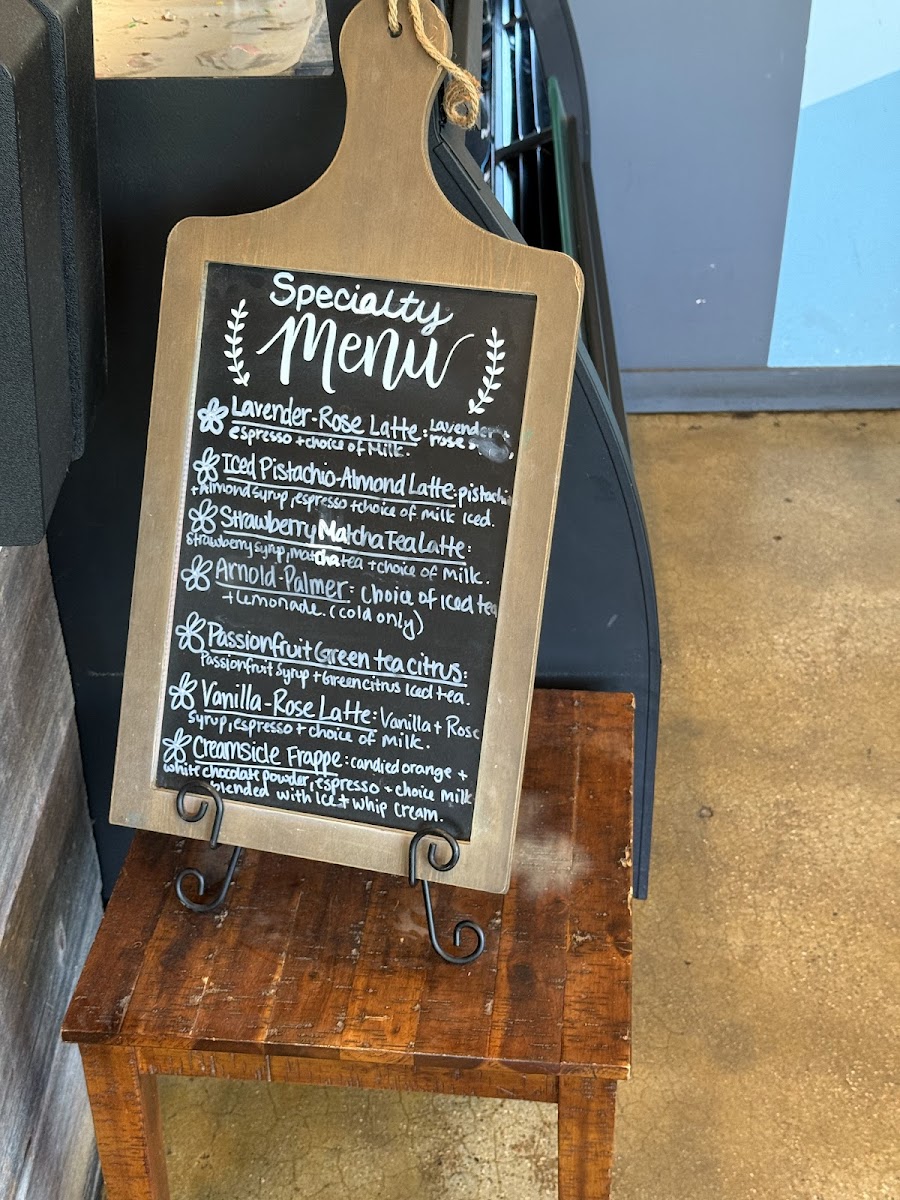 Specialty
Menu
Lavender-Rose Latte: Lavender
espresso + choice of Milk. rose
Iced Pistachio-Almond Latte: pistachio
+ Almond syrup, espresso + choice of milk iced.
Strawberry Matcha Tea Latte:
Strawberry syrup, matcha tea + choice of Milk.
Arnold-Palmer: Choice of iced tea
+ Lemonade. (cold only)
Passionfruit Green tea citrus:
Passionfruit syrup + Green citrus iced tea.
Vanilla-Rose Latte: Vanilla + Rose
syrup, espresso + choice of Milk.
Creamsicle Frappe: candied orange +
white chocolate powder, espresso + choice Milk
blended with Ice + whip cream.